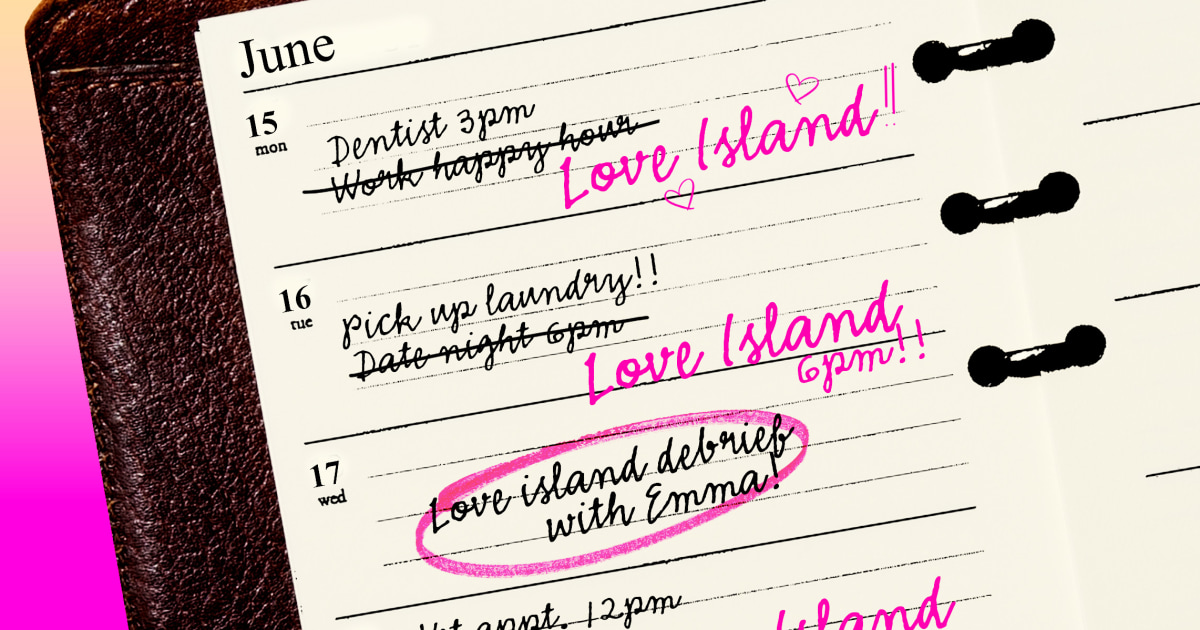 June
15
mon
Dentist 3pm
Work happy hour
Love Island!!
16
tue
pick up laundry!!
Date night 6pm
Love Island
6pm!!
17
wed
Love island debrief
with Emma!
appt. 12pm
Island